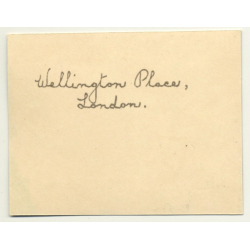 Wellington Place,
London.